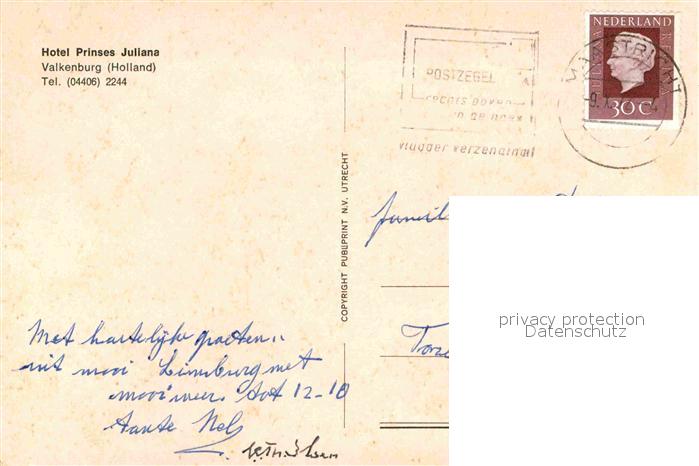 Hotel Prinses Juliana
Valkenburg (Holland)
Tel. (04406) 2244
POSTZEGEL
rechts boven
in de hoek
vlugger verzending
NEDERLAND
30 C
MAASTRICHT
COPYRIGHT PUBLIPRINT N.V. UTRECHT
famil
privacy protection
Datenschutz
Met hartelijke groeten
uit mooi Limburg met
mooi weer. tot 12-10
tante Nel